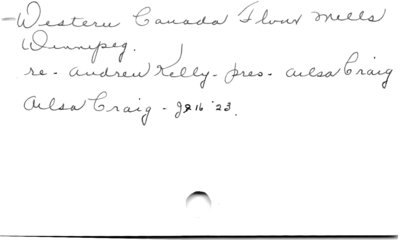 Western Canada Flour Mills
Winnipeg.
re - Andrew Kelly - pres - Ailsa Craig
Ailsa Craig - 16 '23.